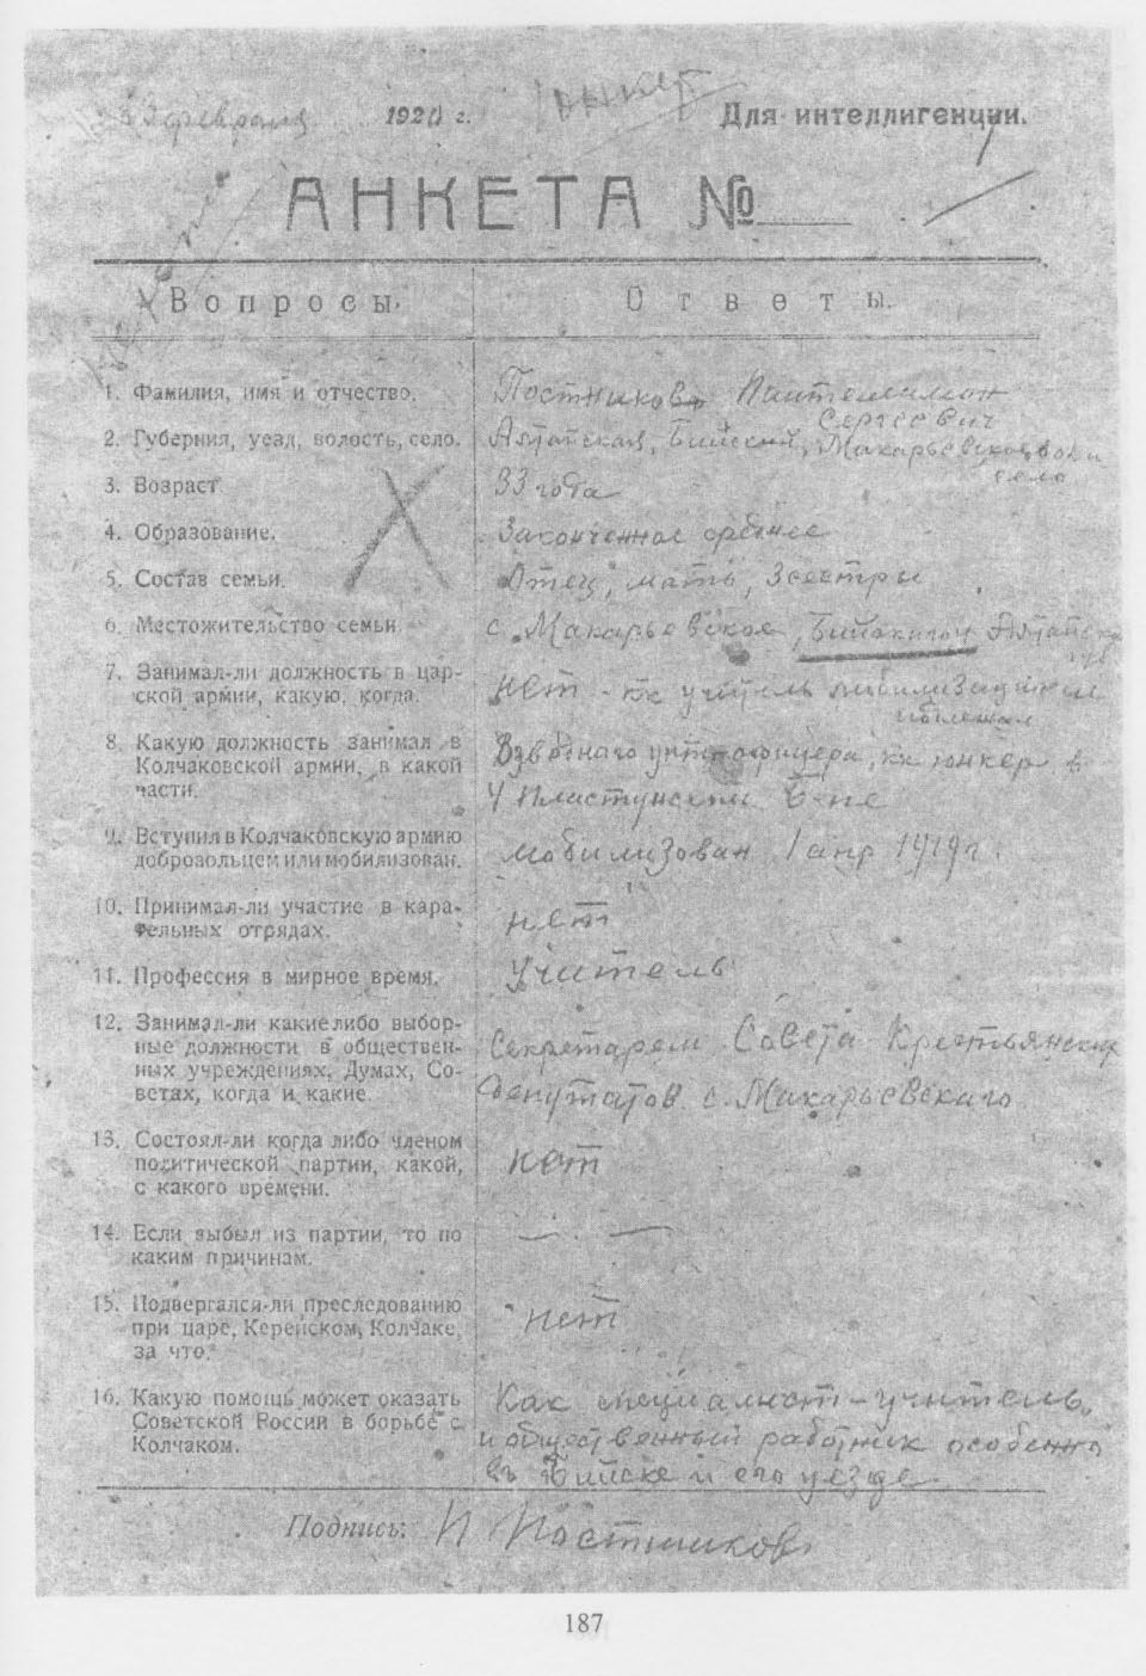 февраля 1920 г.
Для интеллигенции.
АНКЕТА №
Вопросы.
Ответы.
1. Фамилия, имя и отчество.
Постников Пантелимон
Сергеевич
2. Губерния, уезд, волость, село.
Алтайская, Бийский, Макарьевская вол и
село
3. Возраст.
33 года
4. Образование.
Законченное среднее
5. Состав семьи.
Отец, мать, 3 сестры
6. Местожительство семьи.
с. Макарьевское, Алтайск
губ
7. Занимал-ли должность в цар-
ской армии, какую, когда.
нет - кк учитель мобилизации не
8. Какую должность занимал в
Колчаковской армии, в какой
части.
Взводнаго унт-офицера, кк юнкер в
4 Пластунском б-не
9. Вступил в Колчаковскую армию
добровольцем или мобилизован.
мобилизован 1 апр 1919 г.
10. Принимал-ли участие в кара-
тельных отрядах.
нет
11. Профессия в мирное время.
Учитель
12. Занимал-ли какие либо выбор-
ные должности в обществен-
ных учреждениях, Думах, Со-
ветах, когда и какие.
Секретарем Совета Крестьянских
депутатов с. Макарьевскаго
13. Состоял-ли когда либо членом
политической партии, какой,
с какого времени.
нет
14. Если выбыл из партии, то по
каким причинам.
— . —
15. Подвергался-ли преследованию
при царе, Керенском, Колчаке,
за что.
нет
16. Какую помощь может оказать
Советской России в борьбе с
Колчаком.
Как специалист-учитель,
и общественный работник особенно
въ Бийске и его уезде
Подпись: П Постников
187